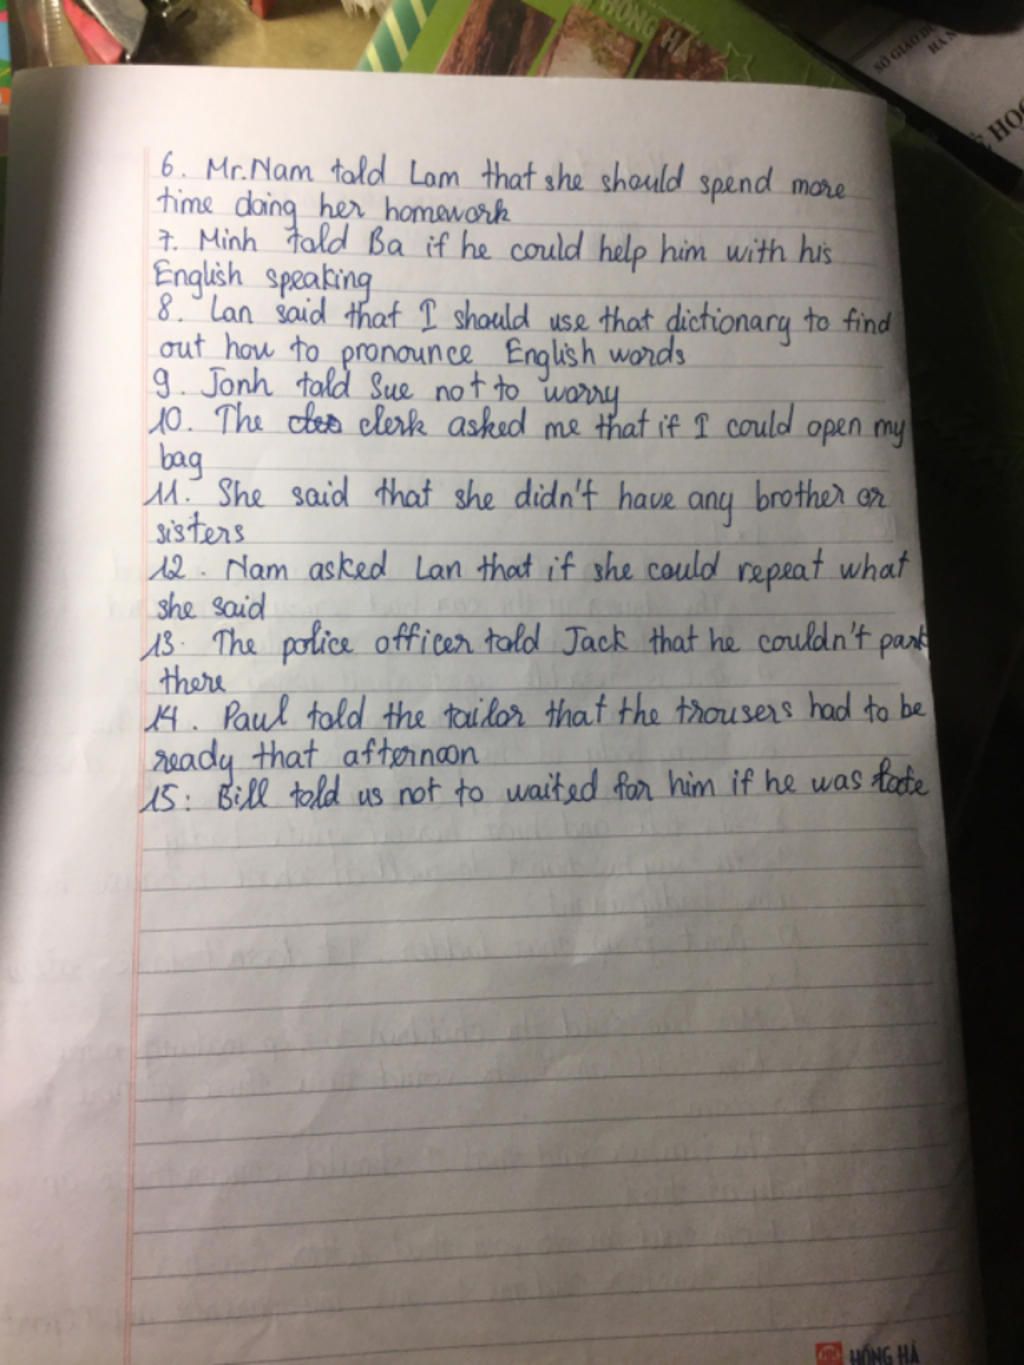 HỒNG HÀ
SỞ GIÁO D
HÀ N
HỌC
6. Mr.Nam told Lam that she should spend more
time doing her homework
7. Minh told Ba if he could help him with his
English speaking
8. Lan said that I should use that dictionary to find
out how to pronounce English words
9. Jonh told Sue not to worry
10. The clerk asked me that if I could open my
bag
11. She said that she didn't have any brother or
sisters
12. Nam asked Lan that if she could repeat what
she said
13. The police officer told Jack that he couldn't park
there
14. Paul told the tailor that the trousers had to be
ready that afternoon
15: Bill told us not to waited for him if he was late
HỒNG HÀ